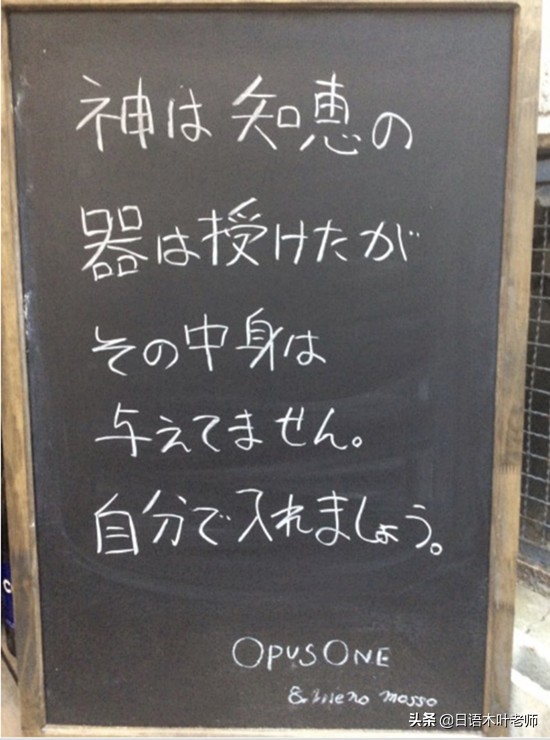 神は知恵の
器は授けたが
その中身は
与えてません。
自分で入れましょう。
OPUSONE
& meno mosso
头条 @日语木叶老师